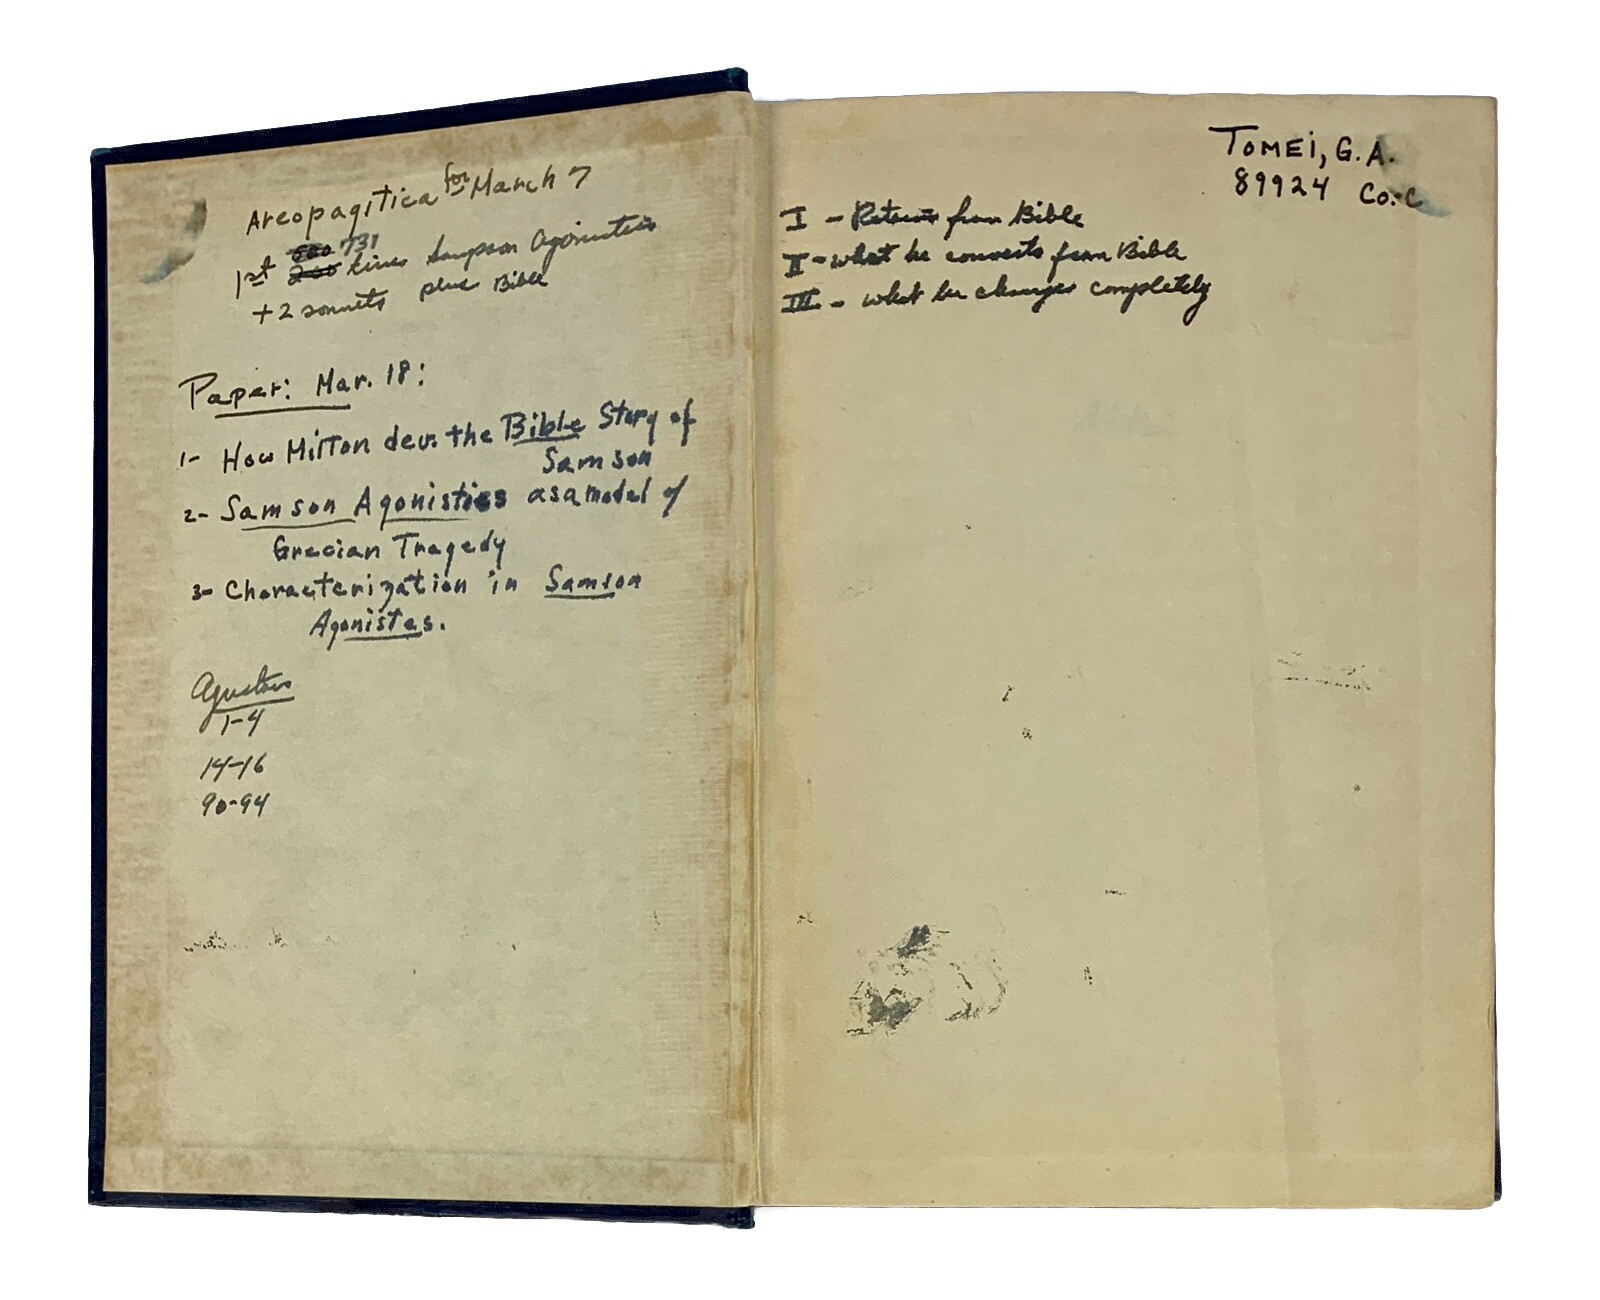 Areopagitica for March 7
1st 600 200 731 lines Sampson Agonistes
+2 sonnets plus Bible
Paper: Mar. 18:
1- How Milton dev. the Bible Story of
Samson
2- Samson Agonisties as a model of
Grecian Tragedy
3- Characterization in Samson
Agonistes.
1-4
14-16
90-94
TOMEI, G.A.
89924 Co. C
I - Retains from Bible
II - what he converts from Bible
III - what he changes completely